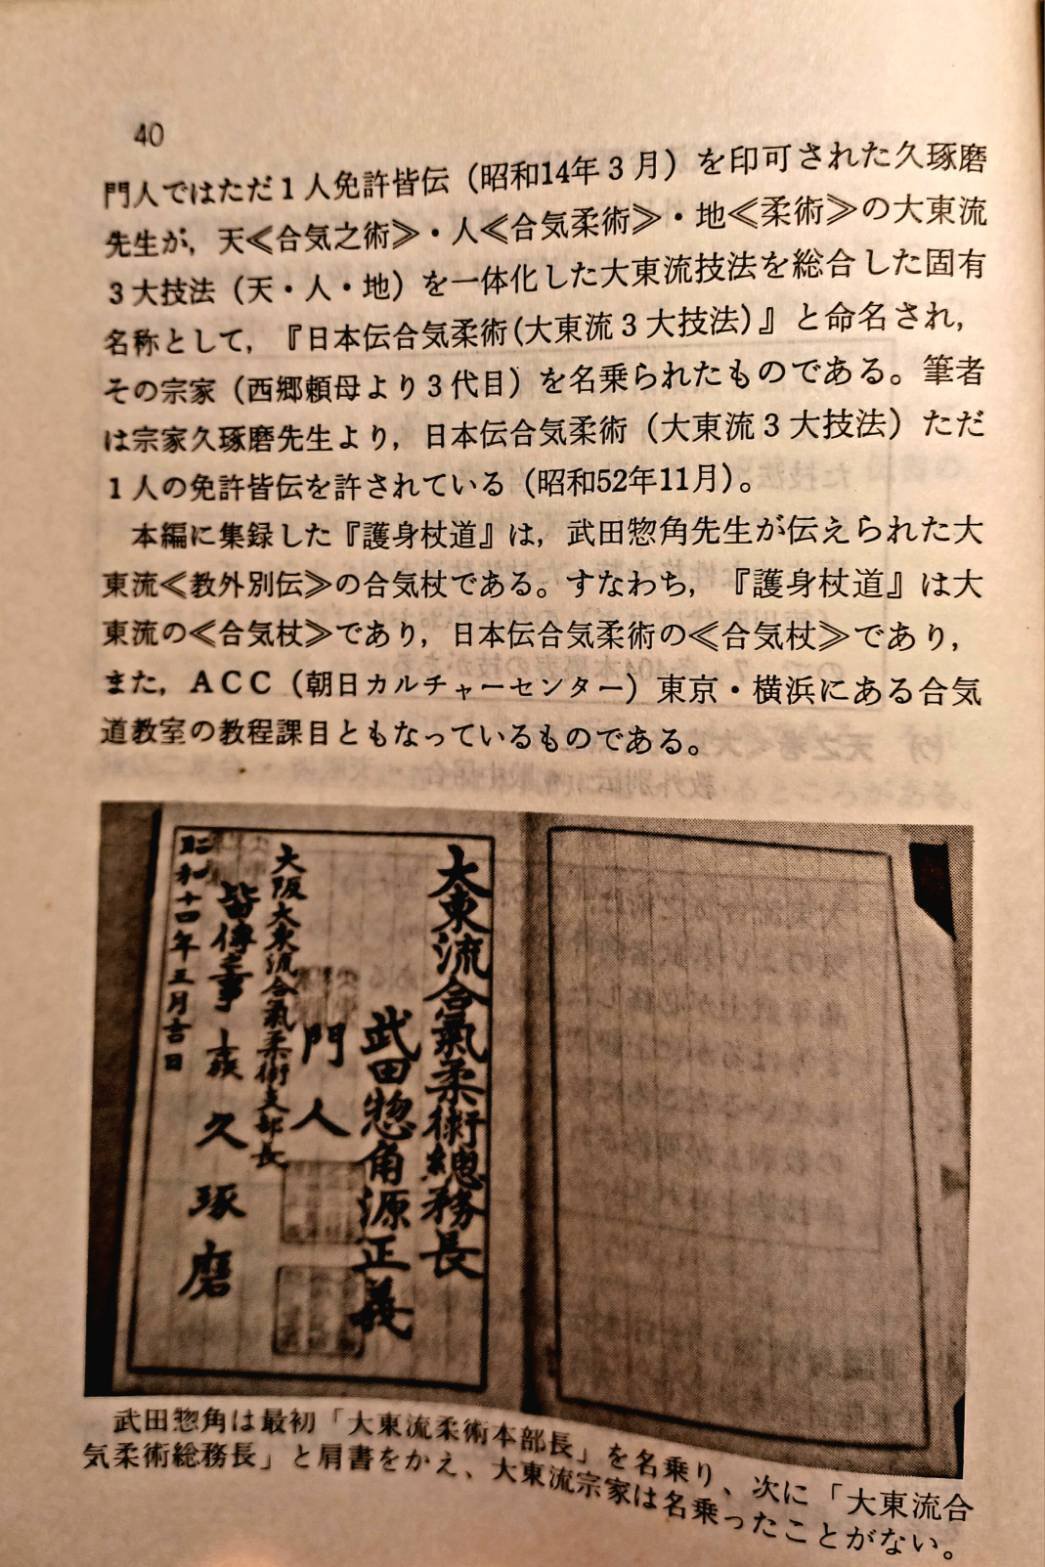 40
門人ではただ1人免許皆伝（昭和14年3月）を印可された久琢磨
先生が，天≪合気之術≫・人≪合気柔術≫・地≪柔術≫の大東流
3大技法（天・人・地）を一体化した大東流技法を総合した固有
名称として，『日本伝合気柔術(大東流3大技法)』と命名され，
その宗家（西郷頼母より3代目）を名乗られたものである。筆者
は宗家久琢磨先生より，日本伝合気柔術（大東流3大技法）ただ
1人の免許皆伝を許されている（昭和52年11月）。
本編に集録した『護身杖道』は，武田惣角先生が伝えられた大
東流≪教外別伝≫の合気杖である。すなわち，『護身杖道』は大
東流の≪合気杖≫であり，日本伝合気柔術の≪合気杖≫であり，
また，ACC（朝日カルチャーセンター）東京・横浜にある合気
道教室の教程課目ともなっているものである。
大東流合氣柔術總務長
武田惣角源正義
門人
大阪大東流合氣柔術支部長
皆傳之事 士族 久琢磨
昭和十四年三月吉日
武田惣角は最初「大東流柔術本部長」を名乗り、次に「大東流合
気柔術総務長」と肩書をかえ、大東流宗家は名乗ったことがない。